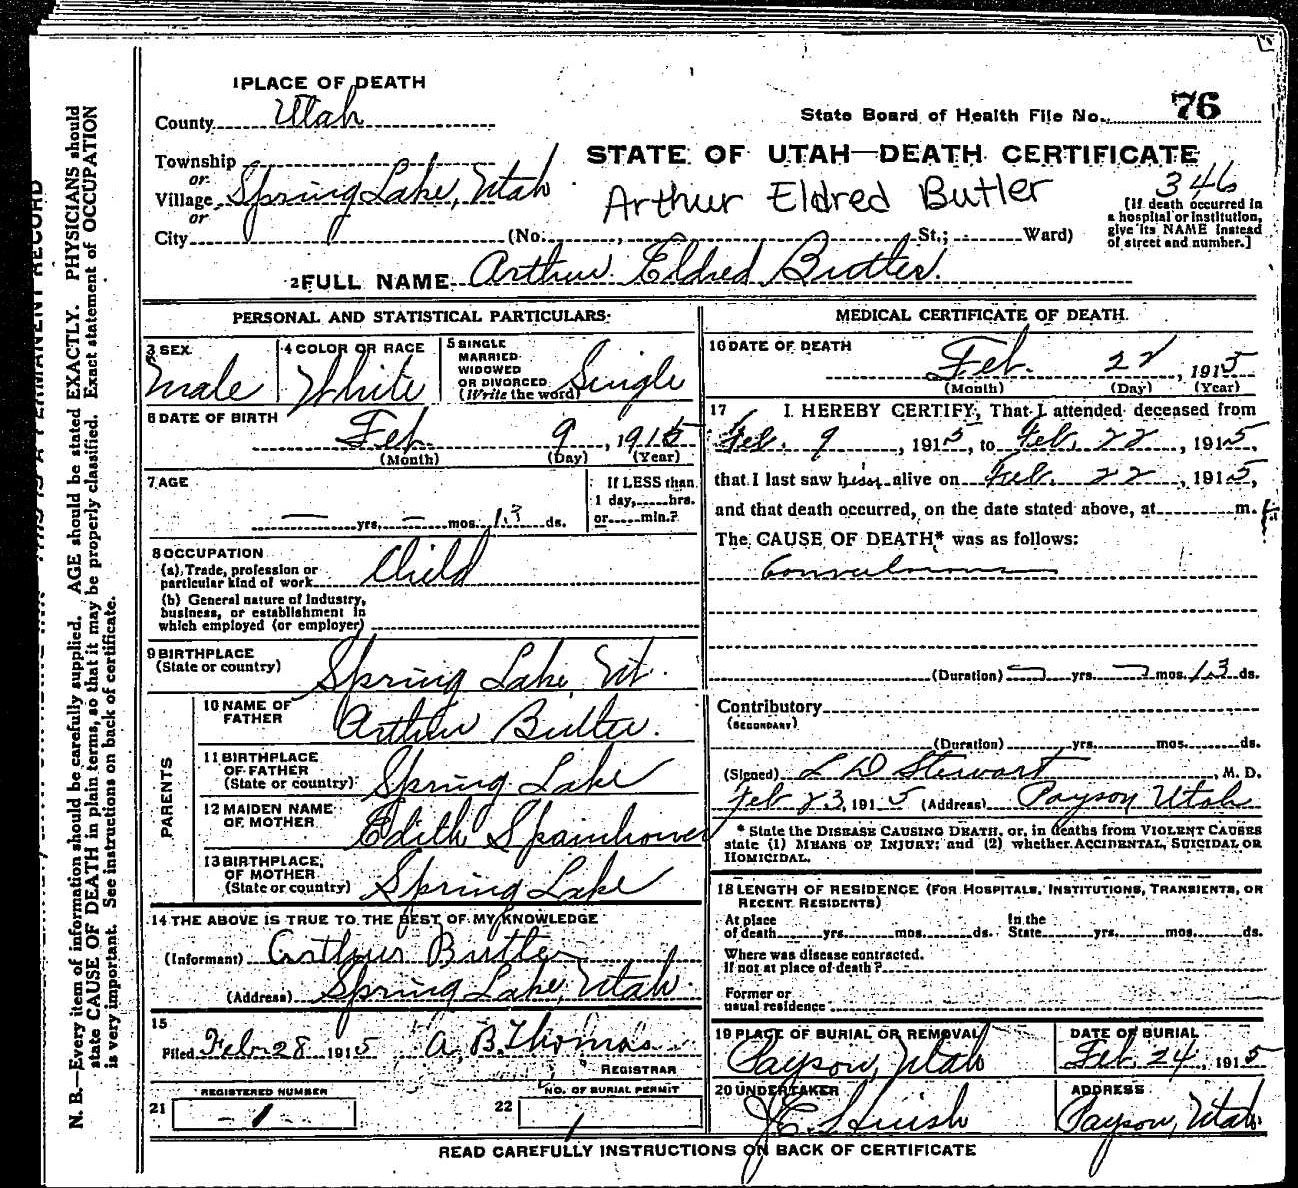 1 PLACE OF DEATH
County Utah
State Board of Health File No. 76
Township
or
Village Spring Lake, Utah
or
City (No. , St.; Ward)
STATE OF UTAH—DEATH CERTIFICATE
Arthur Eldred Butler
346
[If death occurred in
a hospital or institution,
give its NAME instead
of street and number.]
2 FULL NAME Arthur Eldred Butler.
PERSONAL AND STATISTICAL PARTICULARS.
3 SEX
Male
4 COLOR OR RACE
White
5 SINGLE
MARRIED
WIDOWED
OR DIVORCED
(Write the word)
Single
6 DATE OF BIRTH
Feb. 9, 1915
(Month) (Day) (Year)
7 AGE
— yrs. — mos. 13 ds.
If LESS than
1 day, hrs.
or min.?
8 OCCUPATION
(a) Trade, profession or
particular kind of work Child
(b) General nature of Industry,
business, or establishment in
which employed (or employer)
9 BIRTHPLACE
(State or country) Spring Lake, Ut.
PARENTS
10 NAME OF
FATHER Arthur Butler.
11 BIRTHPLACE
OF FATHER
(State or country) Spring Lake
12 MAIDEN NAME
OF MOTHER Edith Spainhower
13 BIRTHPLACE,
OF MOTHER
(State or country) Spring Lake
14 THE ABOVE IS TRUE TO THE BEST OF MY KNOWLEDGE
(Informant) Arthur Butler
(Address) Spring Lake, Utah.
15
Filed Feb 28 1915 A. B. Thomas
REGISTRAR
REGISTERED NUMBER
21 -1
NO. OF BURIAL PERMIT
22 1
MEDICAL CERTIFICATE OF DEATH.
16 DATE OF DEATH
Feb. 22, 1915
(Month) (Day) (Year)
17 I HEREBY CERTIFY, That I attended deceased from
Feb. 9, 1915, to Feb. 22, 1915,
that I last saw him alive on Feb. 22, 1915,
and that death occurred, on the date stated above, at m.
The CAUSE OF DEATH* was as follows:
Convulsions
(Duration) yrs. mos. 13 ds.
Contributory
(SECONDARY)
(Duration) yrs. mos. ds.
(Signed) L D Stewart, M. D.
Feb 23, 1915 (Address) Payson Utah
* State the DISEASE CAUSING DEATH, or, in deaths from VIOLENT CAUSES
state (1) MEANS OF INJURY; and (2) whether ACCIDENTAL, SUICIDAL OR
HOMICIDAL.
18 LENGTH OF RESIDENCE (FOR HOSPITALS, INSTITUTIONS, TRANSIENTS, OR
RECENT RESIDENTS)
At place
of death yrs. mos. ds.
In the
State yrs. mos. ds.
Where was disease contracted.
If not at place of death?
Former or
usual residence
19 PLACE OF BURIAL OR REMOVAL
Payson, Utah
DATE OF BURIAL
Feb. 24, 1915
20 UNDERTAKER
J. E. Huish
ADDRESS
Payson, Utah.
READ CAREFULLY INSTRUCTIONS ON BACK OF CERTIFICATE
N. B.—Every item of information should be carefully supplied. AGE should be stated EXACTLY. PHYSICIANS should
state CAUSE OF DEATH in plain terms, so that it may be properly classified. Exact statement of OCCUPATION
is very important. See instructions on back of certificate.
THIS IS A PERMANENT RECORD